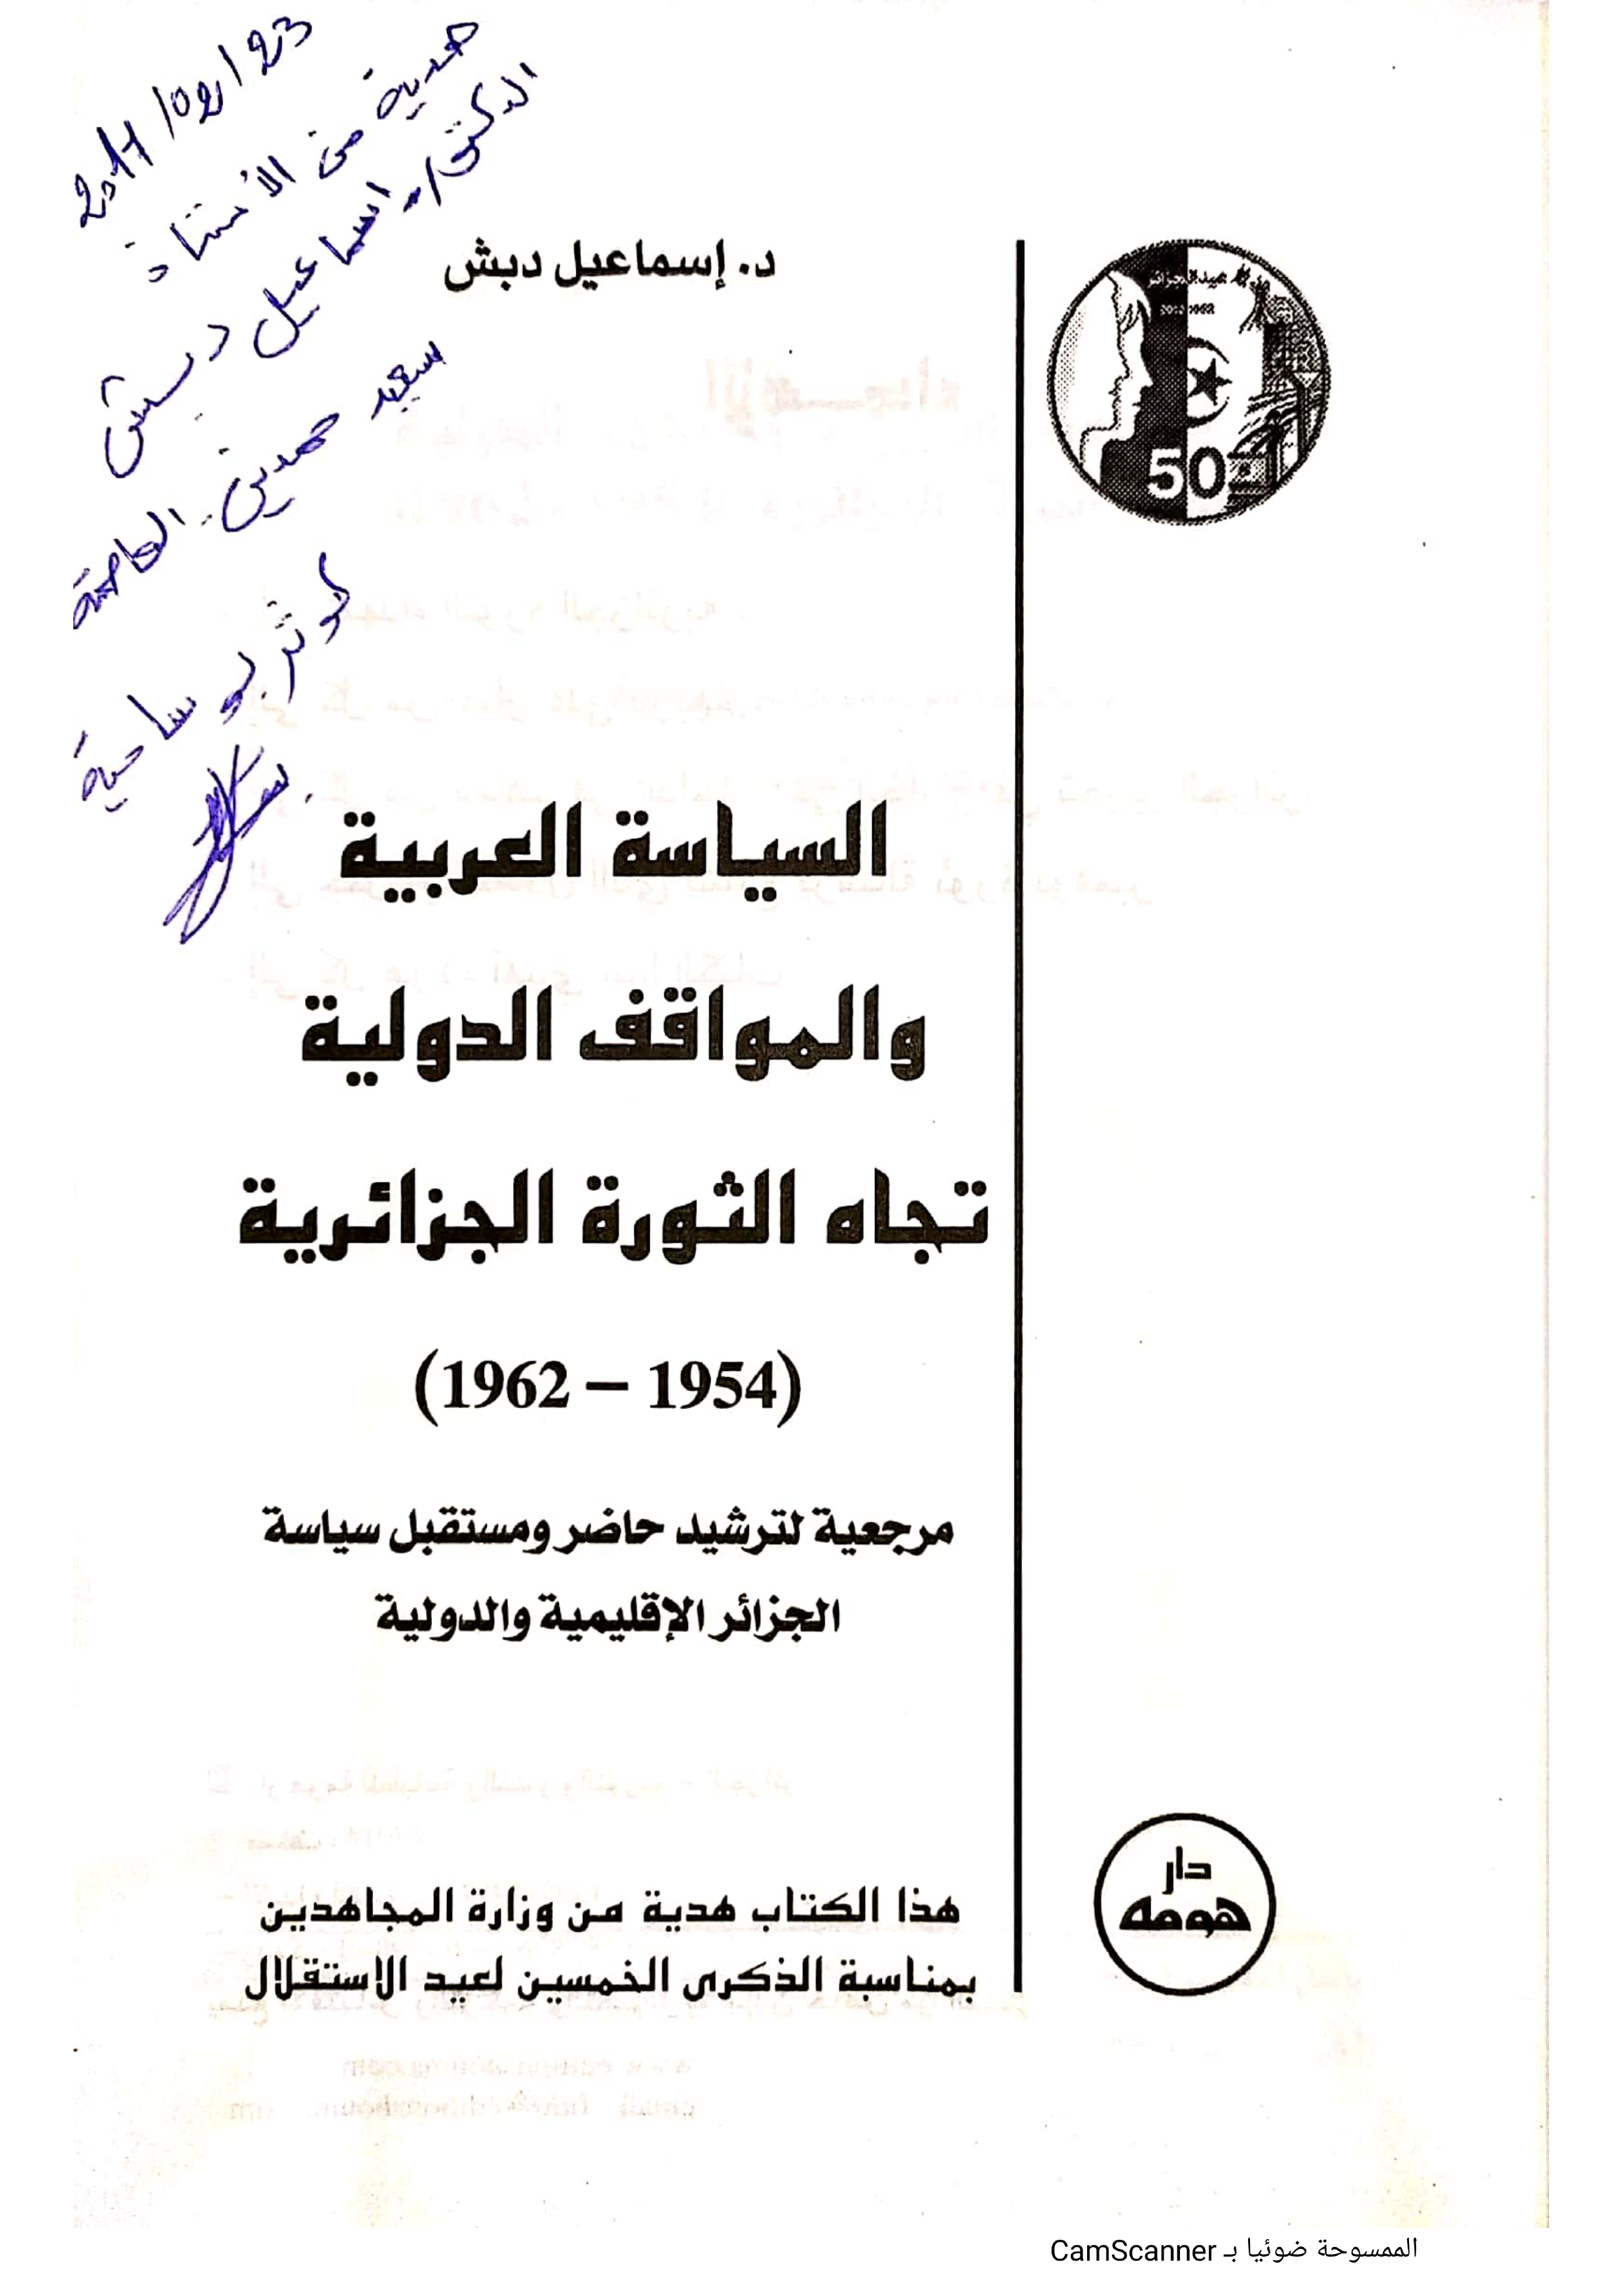 2017/02/23
هدية من الأستاذ
الدكتور اسماعيل دبش
سعيد حمدين العاصمة
كوثر بوساحية
د. إسماعيل دبش
50
السياسة العربية
والمواقف الدولية
تجاه الثورة الجزائرية
(1954 – 1962)
مرجعية لترشيد حاضر ومستقبل سياسة
الجزائر الإقليمية والدولية
هذا الكتاب هدية من وزارة المجاهدين
بمناسبة الذكرى الخمسين لعيد الاستقلال
دار
هومه
الممسوحة ضوئيا بـ CamScanner